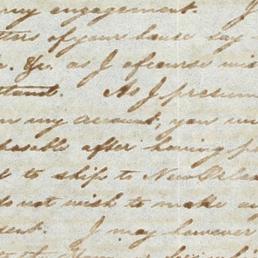 my engagement. I
of your house say
&c. as I of course
As I presum
my account, you
after having p
to ship to New Orlea
do not wish to make a
I may however